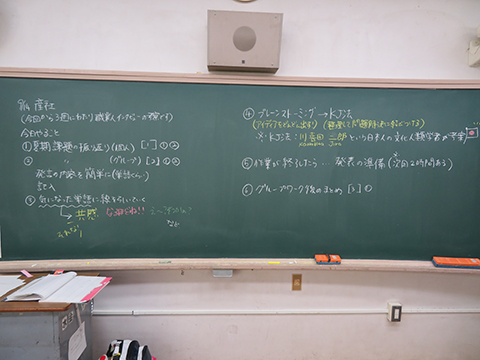 9/4 産社
(今日から3週にわたり職業人インタビューの類です)
今日やること
① 夏期課題の振り返り (個人) [1] ①②
② 〃 (グループ) [2] ①②
発言の内容を簡単に(単語ぐらい)
記入
③ 気になった単語に線を引いていく
共感 なるほどね!! えーそうかな?
それな! など
④ ブレーンストーミング→KJ法
(アイディアをどんどん出す) (整理して問題解決に結びつける)
※KJ法:川喜田 二郎 という日本人の文化人類学者が考案
Kawakita Jiro
⑤ 作業が終了したら… 発表の準備(次回2時間あり)
⑥ グループワーク後のまとめ [3] ①